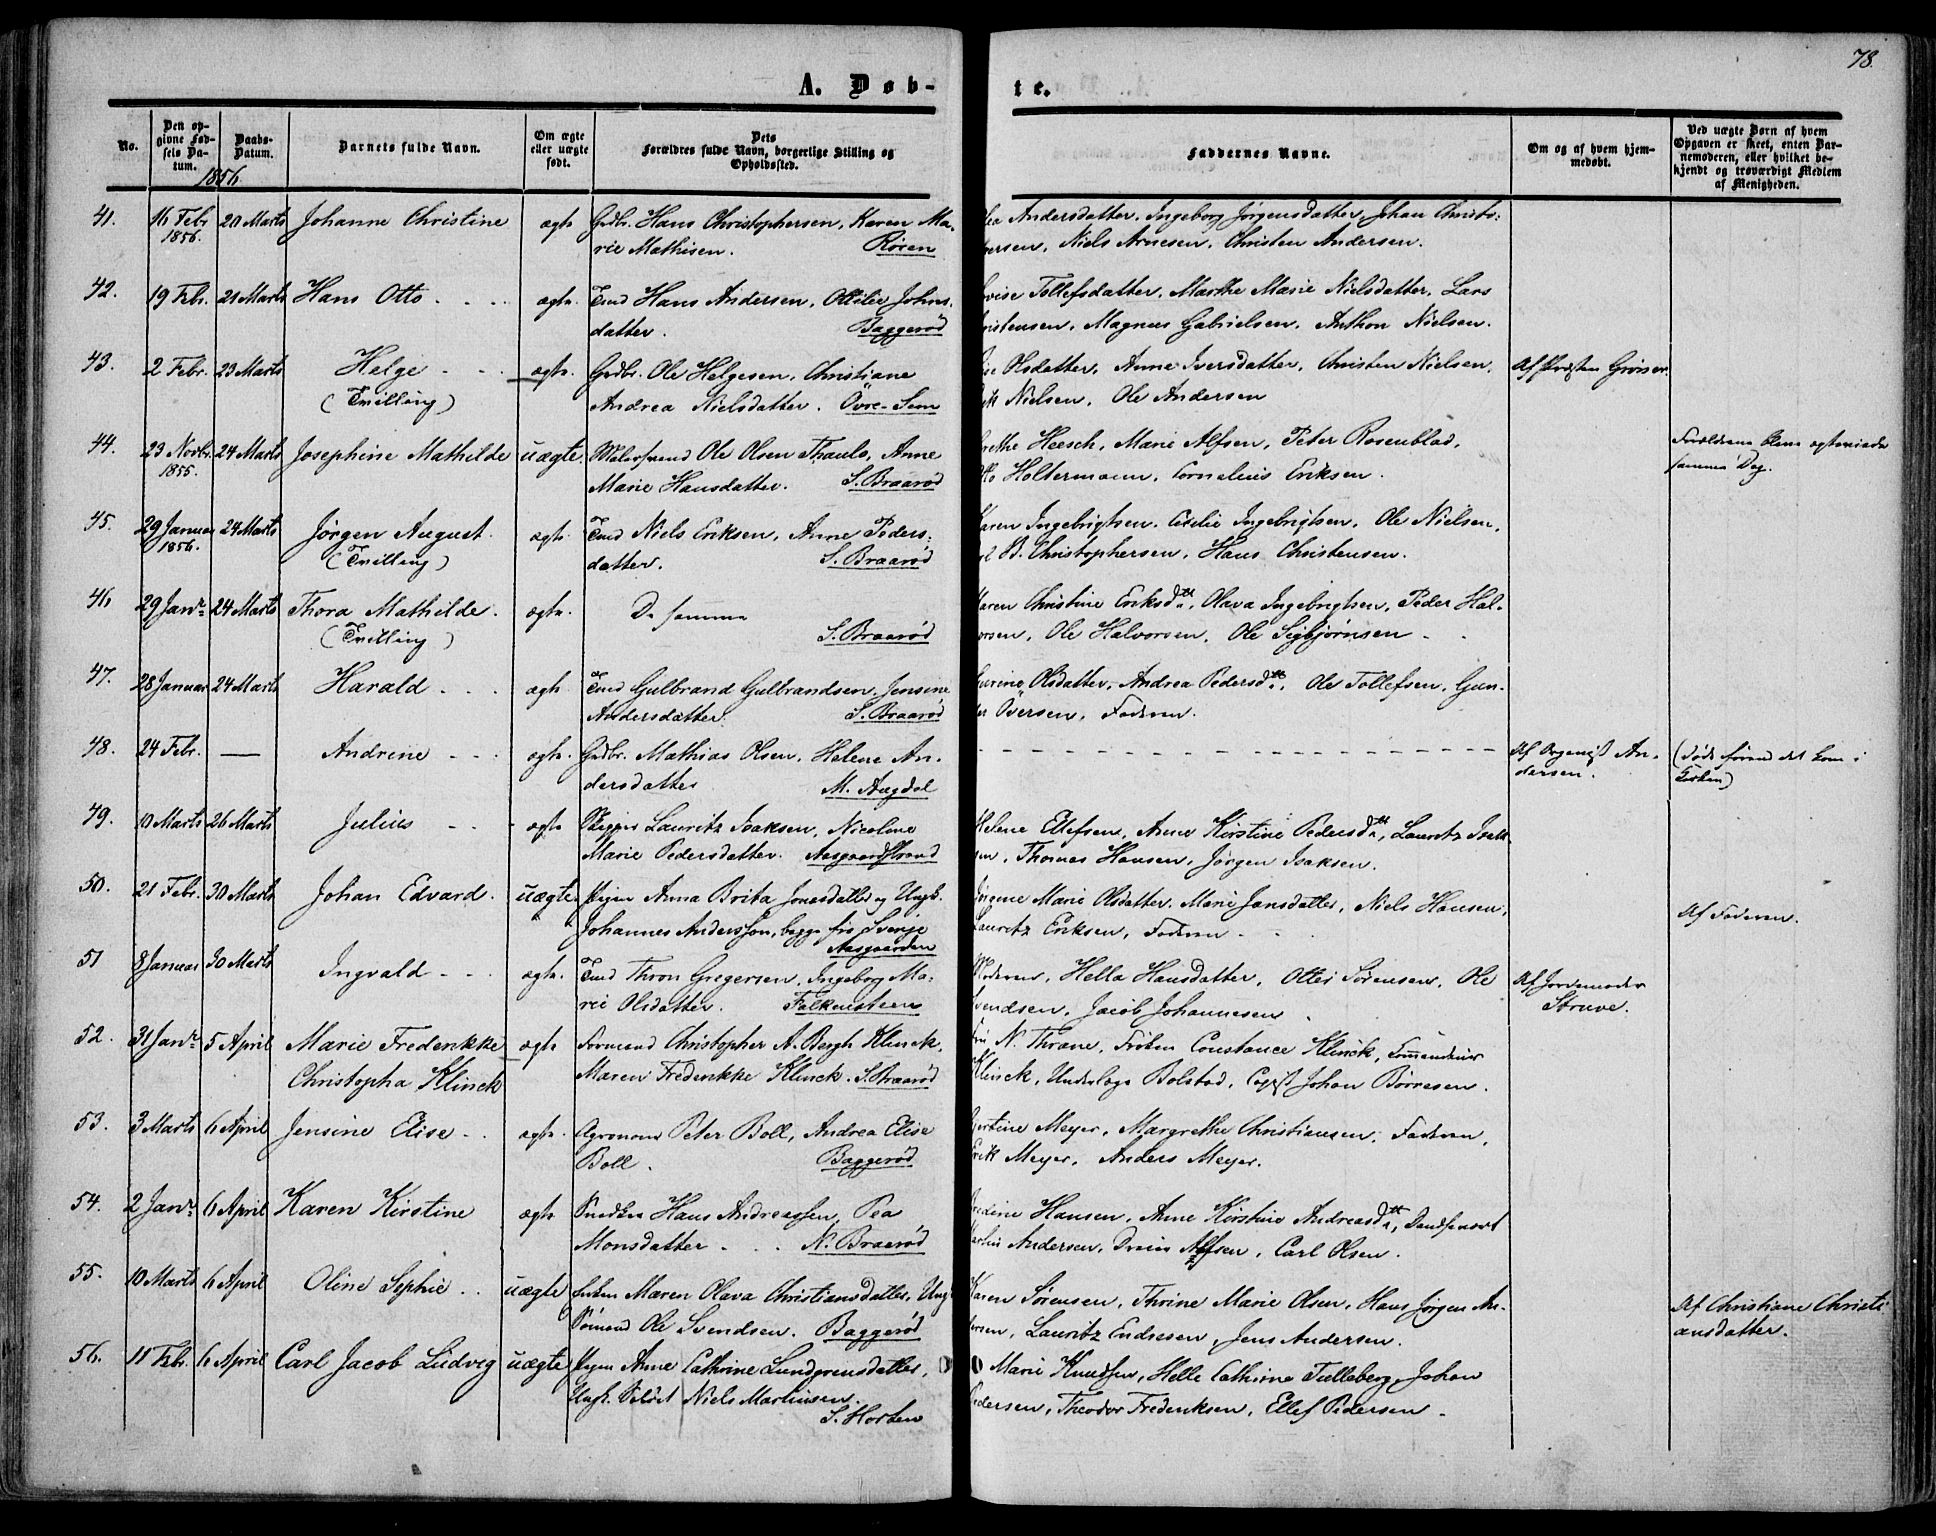 78.
A. Døb-
te.
No.
Den op-
givne Fød-
sels Da-
tum.
Daabs-
Datum.
1856.
Barnets fulde Navn.
Om ægte
eller uægte
født.
Dets
Forældres fulde Navn, borgerlige Stilling og
Opholdssted.
Faddernes Navne.
Om og af hvem hjem-
medøbt.
Ved uægte Børn af hvem
Opgaven er skeet, enten Bar-
nemoderen, eller hvilket be-
kjendt og troværdigt Medlem
af Menigheden.
41. 16 Febr 20 Marts Johanne Christine ægte Grdbr. Hans Christophersen, Karen Ma-
1856. rie Mathisen. Røren
Andersdatter, Ingeborg Jørgensdatter, Johan Christo-
Niels Arnesen, Christen Andersen.
42. 19 Febr. 21 Marts Hans Otto ægte Imd Hans Andersen, Ottilie Johns-
datter. Baggerød
Tollefsdatter, Marthe Marie Nielsdatter, Lars
Magnus Gabrielsen, Anthon Nielsen.
43. 2 Febr. 23 Marts Helge ægte. Grdbr. Ole Helgesen, Christiane
(Tvilling) Andrea Nielsdatter. Övre-Sem
Olsdatter, Anne Iversdatter, Christen Nielsen,
Nielsen, Ole Andersen
Af Præsten
44. 23 Novbr. 24 Marts Josephine Mathilde uægte. Malersvend Ole Olsen Thaulo, Anne
1855. Marie Hansdatter. S. Braarød
Heesch, Marie Alfsen, Peter Rosenblad,
Holtermann, Cornelius Eriksen.
Forældrene bleve ægteviede
samme Dag.
45. 29 Januar 24 Marts Jørgen August. ægte Imd Niels Eriksen, Anne Peders-
1856. (Tvilling) datter. S. Braarød
Karen Ingebrigtsen, Cecilie Ingebrigtsen, Ole Nielsen,
B. Christophersen, Hans Christensen.
46. 29 Janr. 24 Marts Thora Mathilde. ægte. De samme
(Tvilling) S. Braarød
Maren Christine Eriksdtt, Olava Ingebrigtsen, Peder Hal-
vorsen, Ole Halvorsen, Ole Sigbjørnsen
47. 28 Januar 24 Marts Harald ægte. Imd Gulbrand Gulbrandsen, Jensine
Andersdatter. S. Braarød
Olsdatter, Andrea Pedersdtt, Ole Tollefsen, Gun-
Iversen, Faderen.
48. 24 Febr. — Andrine ægte. Grdbr. Mathias Olsen, Helene An-
dersdatter M. Augdal
Af Organist An-
dersen.
(Døde førend det kom i
Kirken)
49. 10 Marts 26 Marts Julius ægte Skipper Lauritz Isaksen, Nicoline
Marie Pedersdatter. Aasgaardstrand
Helene Ellefsen, Anne Kirstine Pedersdtt, Lauritz Isak-
sen, Thomas Hansen, Jørgen Isaksen.
50. 21 Febr. 30 Marts Johan Edvard. uægte. Pigen Anna Brita Jonasdatter og Ungk.
Johannes Andersson, begge fra Sverige
Aasgaarden
Jørgine Marie Olsdatter, Marie Jansdatter, Niels Hansen,
Lauritz Eriksen, Faderen
Af Faderen.
51 8 Januar 30 Marts Ingvald ægte. Imd Thron Gregersen, Ingeborg Ma-
rie Olsdatter. Falkensteen
Moderen, Hella Hansdatter, Otter Sørensen, Ole
Svendsen, Jacob Johannesen
Af Jordemoder
Struve.
52. 31 Janr. 5 April Marie Frederikke ægte Christopher A. Bergh Klinck,
Christopha Klinck Maren Frederikke Klinck. S. Braarød
N. Thrane, Frøken Constance Klinck,
Klinck, Underlæge Bolstad, Copist Johan Børresen.
53. 3 Marts 6 April Jensine Elise ægte. Agronom Peter Boll, Andrea Elise
Boll. Baggerød
Meyer, Margrethe Christiansen, Faderen,
Erik Meyer, Anders Meyer.
54. 2 Janr. 6 April Karen Kirstine ægte Snedker Hans Andreassen, Pea
Monsdatter N. Braarød
Hansen, Anne Kirstine Andreasdtt,
Andersen, Alfsen, Carl Olsen.
55. 10 Marts 6 April Oline Sophie uægte Enken Maren Olava Christiansdatter, Ungk.
Sømand Ole Svendsen. Baggerød
Karen Sørensen, Thrine Marie Olsen, Hans Jørgen An-
dersen, Lauritz Endresen, Jens Andersen.
Af Christiane Christi-
ansdatter.
56. 11 Febr. 6 April Carl Jacob Ludvig uægte Pigen Anne Cathrine Lundgrensdatter,
Ungk. Soldat Niels Martinsen.
S. Horten
Marie Knudsen, Helle Cathrine Tulleberg, Johan
Pedersen, Theodor Frederiksen, Ellef Pedersen